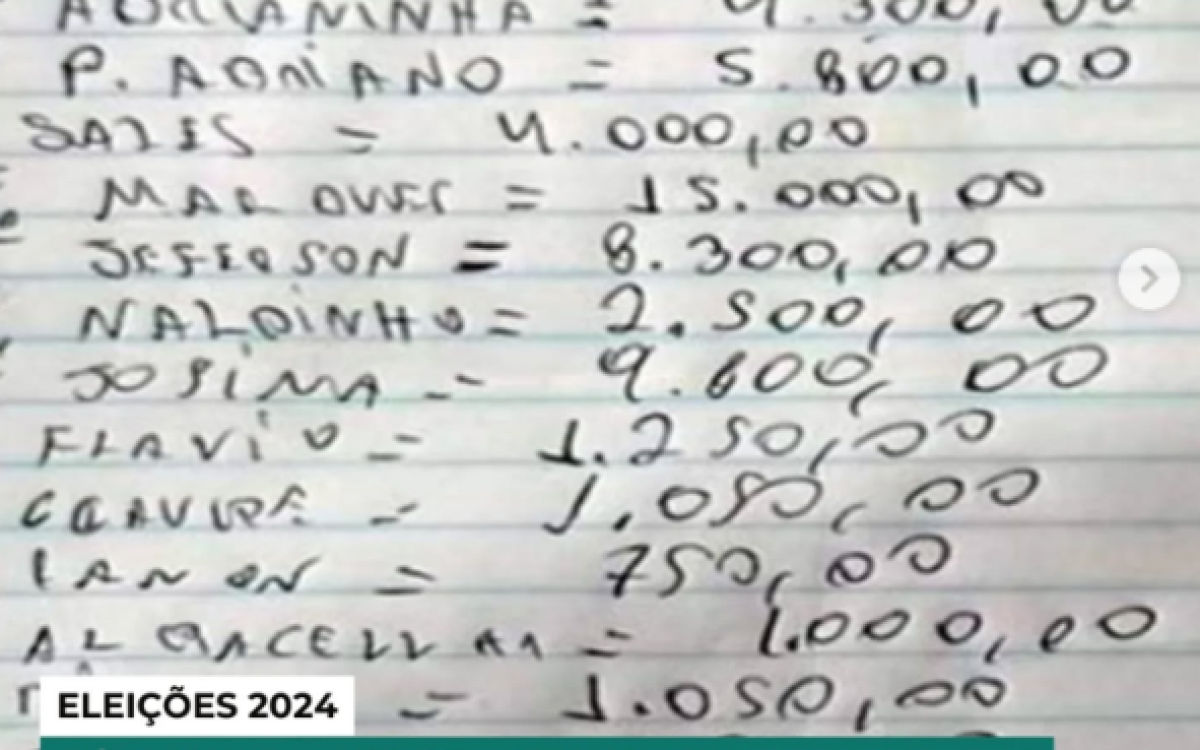 ADRIANINHA = 4.300,00
P. ADRIANO = 5.800,00
SALES = 4.000,00
= 15.000,00
JEFERSON = 8.300,00
NALDINHO = 2.500,00
JOSIMA = 9.600,00
FLAVIO = 1.250,00
= 1.050,00
= 750,00
= 1.000,00
= 1.050,00
ELEIÇÕES 2024